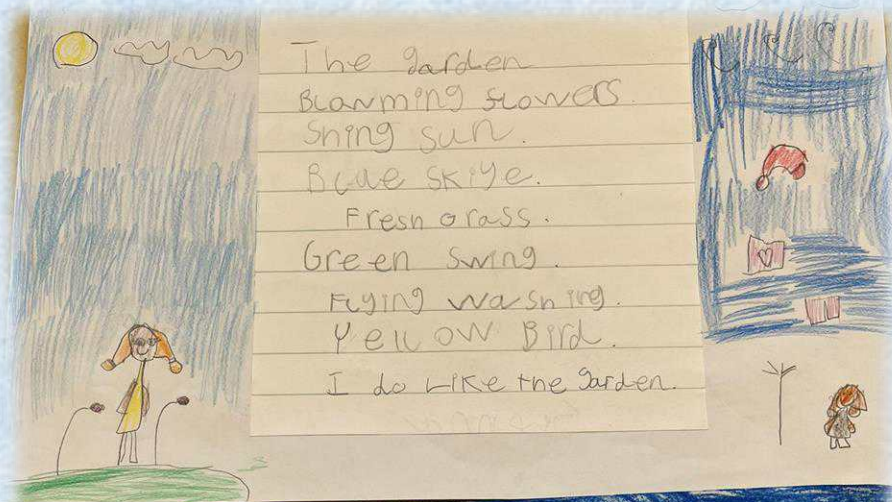 The garden
Blowming flowers.
Shing sun.
Blue skiye.
Fresh grass.
Green swing.
Flying washing.
Yellow Bird.
I do like the garden.